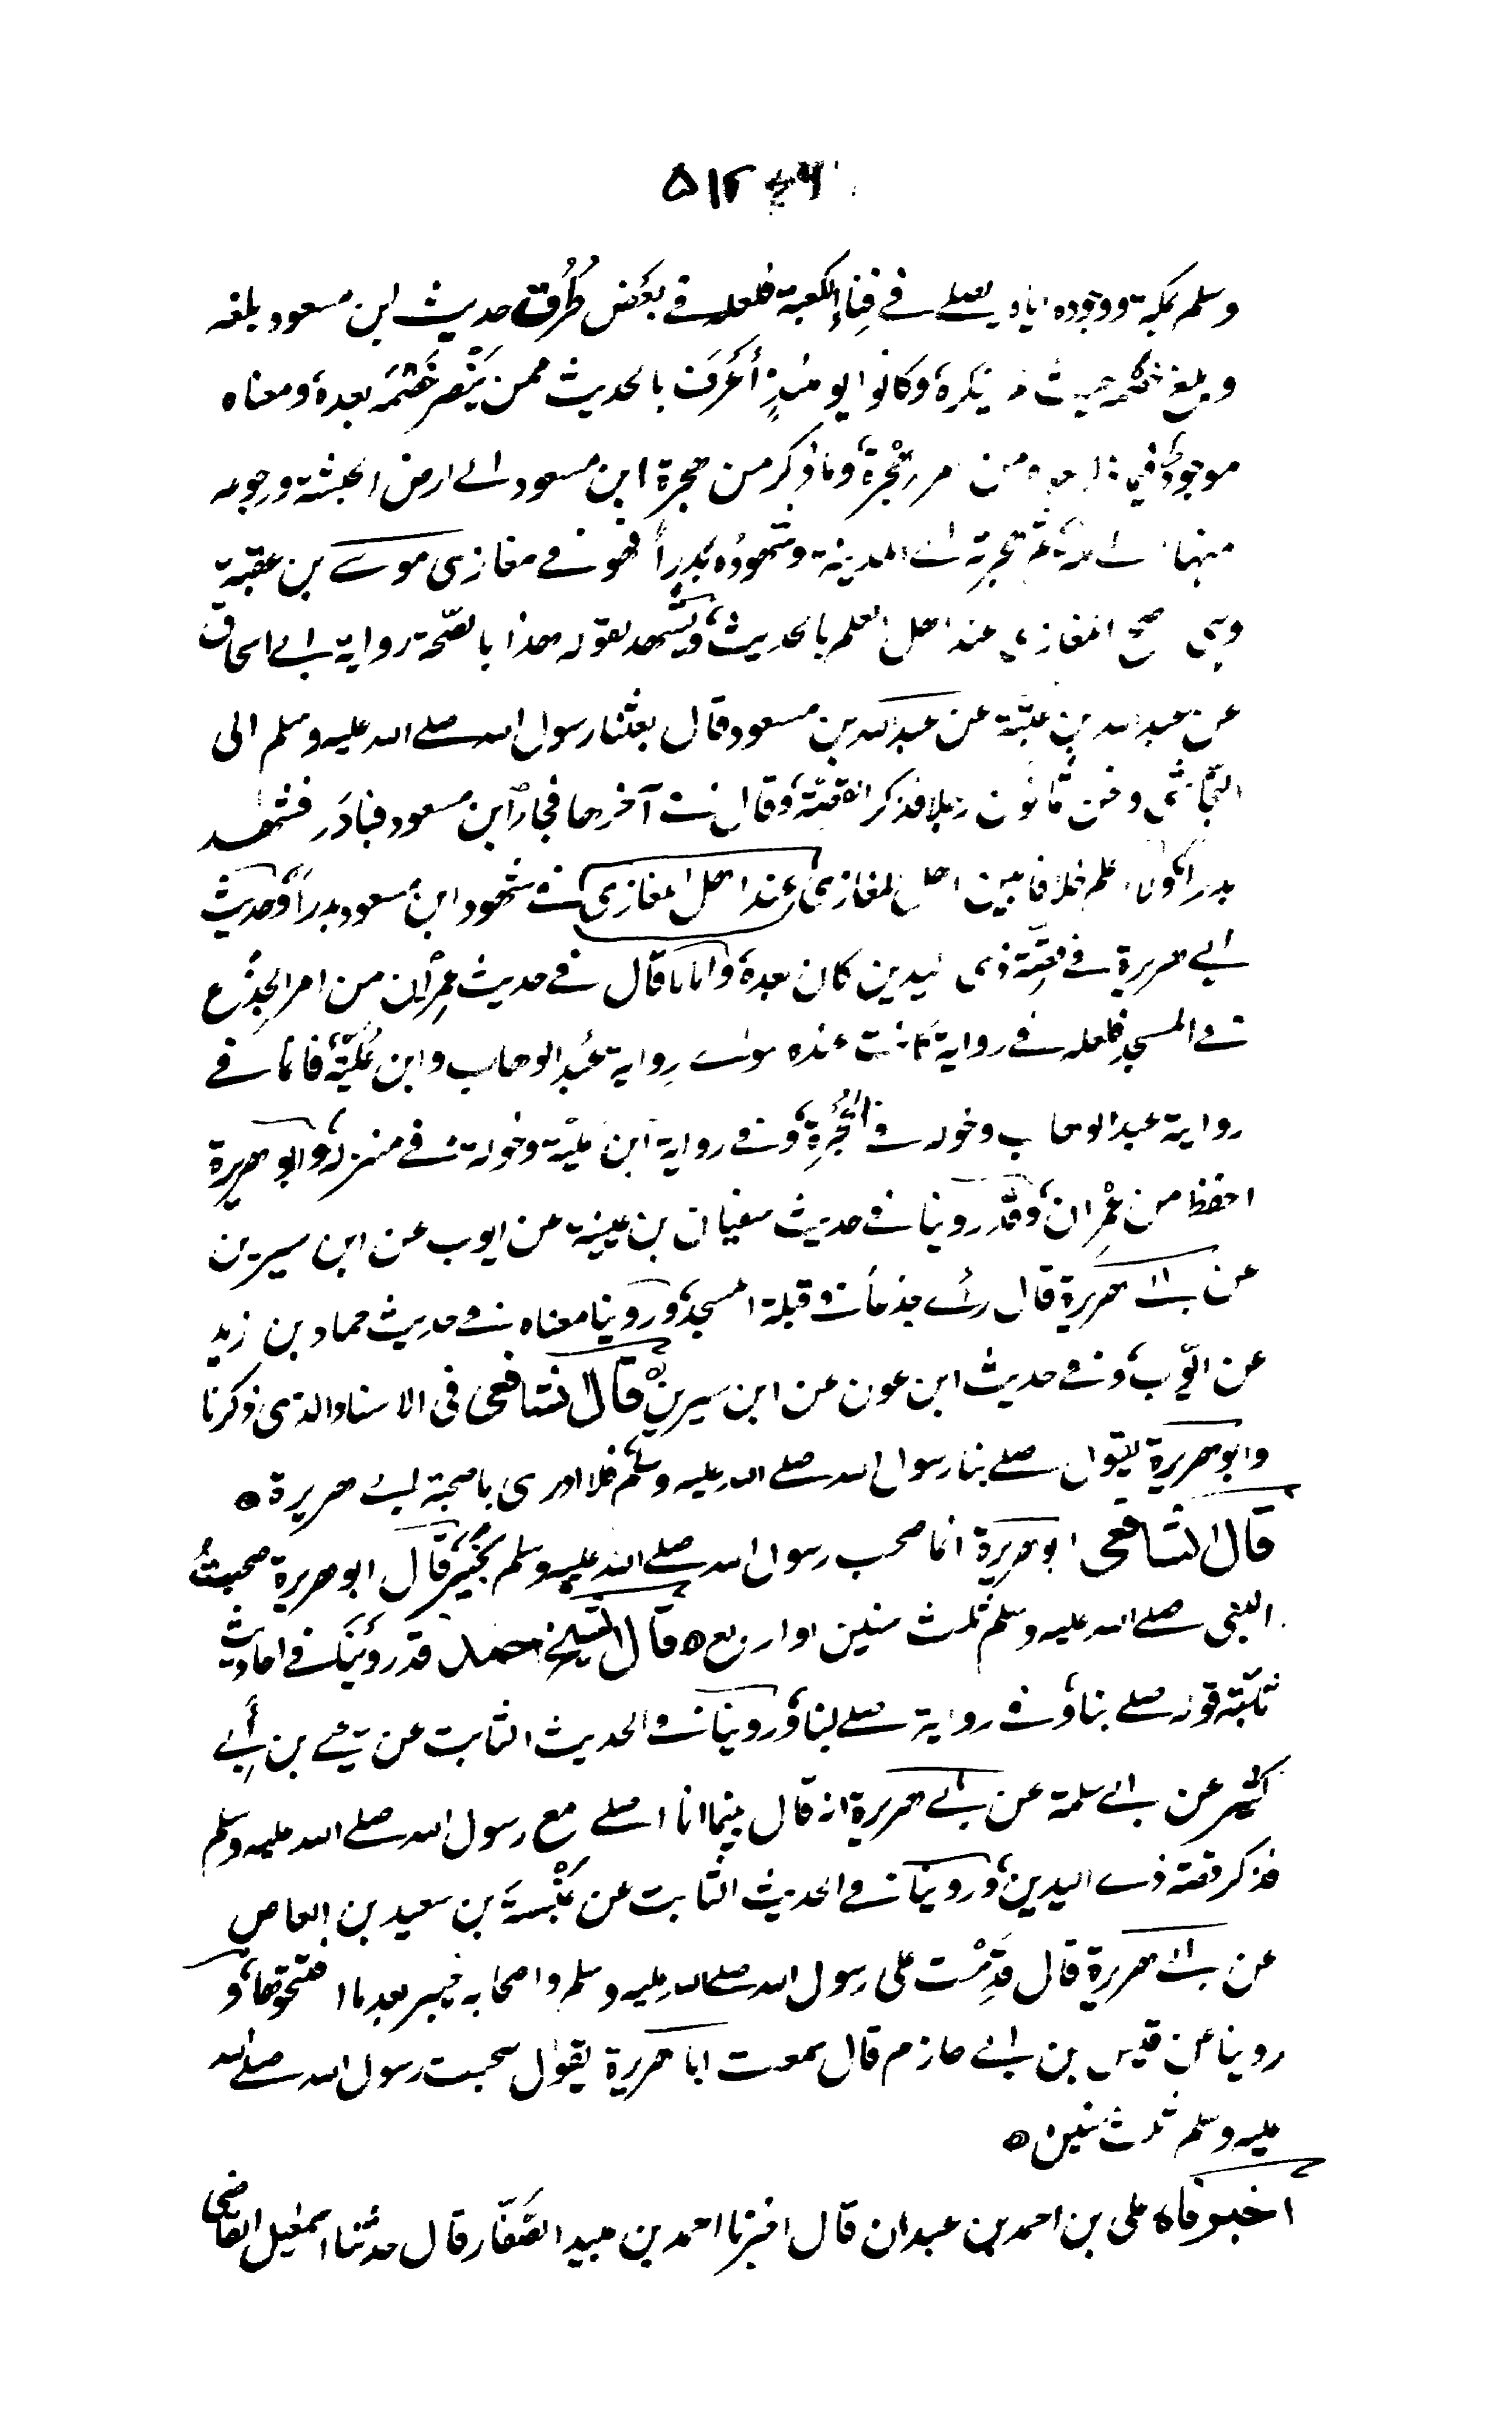 ۵۱۲
وسلم بمكة ووجوده اياه يصلے فے فِناء الكعبة فلعله فے بعض طُرُق حديث ابن مسعود بلغه
حيث وكانوا يومئذٍ أعرَف بالحديث ممن ينصر بعده ومعناه
موجودٌ وما ذكر من هجرة ابن مسعود الے ارض الحبشة ورجوعه
منها هجرته الے المدينة وشهودُه بدراً فهو فے مغازى موسے بن عقبة
وهى المغازى عند اهل العلم بالحديث، ويشهد لقوله هذا بالصحّة رواية ابے اسحاق
عن عبد الله بن عتبة عن عبد الله بن مسعود قال بعثنا رسول الله صلے الله عليه وسلم الى
النّجاشى ونحن ثمانون رجلا فذكر القصّة، وقال فے آخرها فجاء ابن مسعود فبادَر فشهد
بدراً، علم خلافا بين اهل المغازى عند اهل المغازى فے شهود ابن مسعود بدراً، وحديث
ابے هريرة فے قصّة ذى اليدين كان بعده، واما ما قال فے حديث عِمْرٰن من امر الجِذْع
فے المسجد فلعله فے رواية كانت عنده سوٰے رِواية عبْد الوهاب وابن عُليّة، فانما فے
رواية عبد الوهاب دخوله فے الحُجْرةِ، وفے رواية ابن عليّة دخوله فے منزله، وابو هريرة
احفظ من عِمْران، وقد روينا فے حديث سفيان بن عيينة عن ايوب عن ابن سيرين
عن ابے هريرة قال جذعا فے قبلة المسجد، وروينا معناه فے حديث حماد بن زيد
عن ايّوب، وفے حديث ابن عون عن ابن سيرين قال الشافعى فى الاسناد الذى ذكرنا
وابو هريرة يقول صلے بنا رسول الله صلے الله عليه وسلم، فلا ادرى ما صحبة ابے هريرة ه
قال الشافعى ابو هريرة انما صحب رسول الله صلے الله عليه وسلم بخيْبَر، قال ابو هريرة صحبتُ
النبى صلے الله عليه وسلم ثلٰث سنين او اربع ه قال الشيخ احمد قد روَيناه فے احاديث
ثابتة قوله صلے بنا، وفے رواية صلے لنا، وروينا فے الحديث الثابت عن يحيے بن أبے
كثير عن ابے سلمة عن ابے هريرة انه قال بينما انا اصلے مع رسول الله صلے الله عليه وسلم
فذكر قصة ذے اليدين، وروينا فے الحديث الثابت عن عَنْبَسةَ بن سعيد بن العاص
عن ابے هريرة قال قدِمْت على رسول الله صلے الله عليه وسلم واصحابه خيبر بعد ما افتتحوها، و
روينا عن قيس بن ابے حازم قال سمعت ابا هريرة يقول صحبت رسول الله صلے الله
عليه وسلم ثلٰث سنين ه
اخبرناه على بن احمد بن عبدان قال اخبرنا احمد بن عبيد الصفّار قال حدثنا اسمٰعيل القاضى